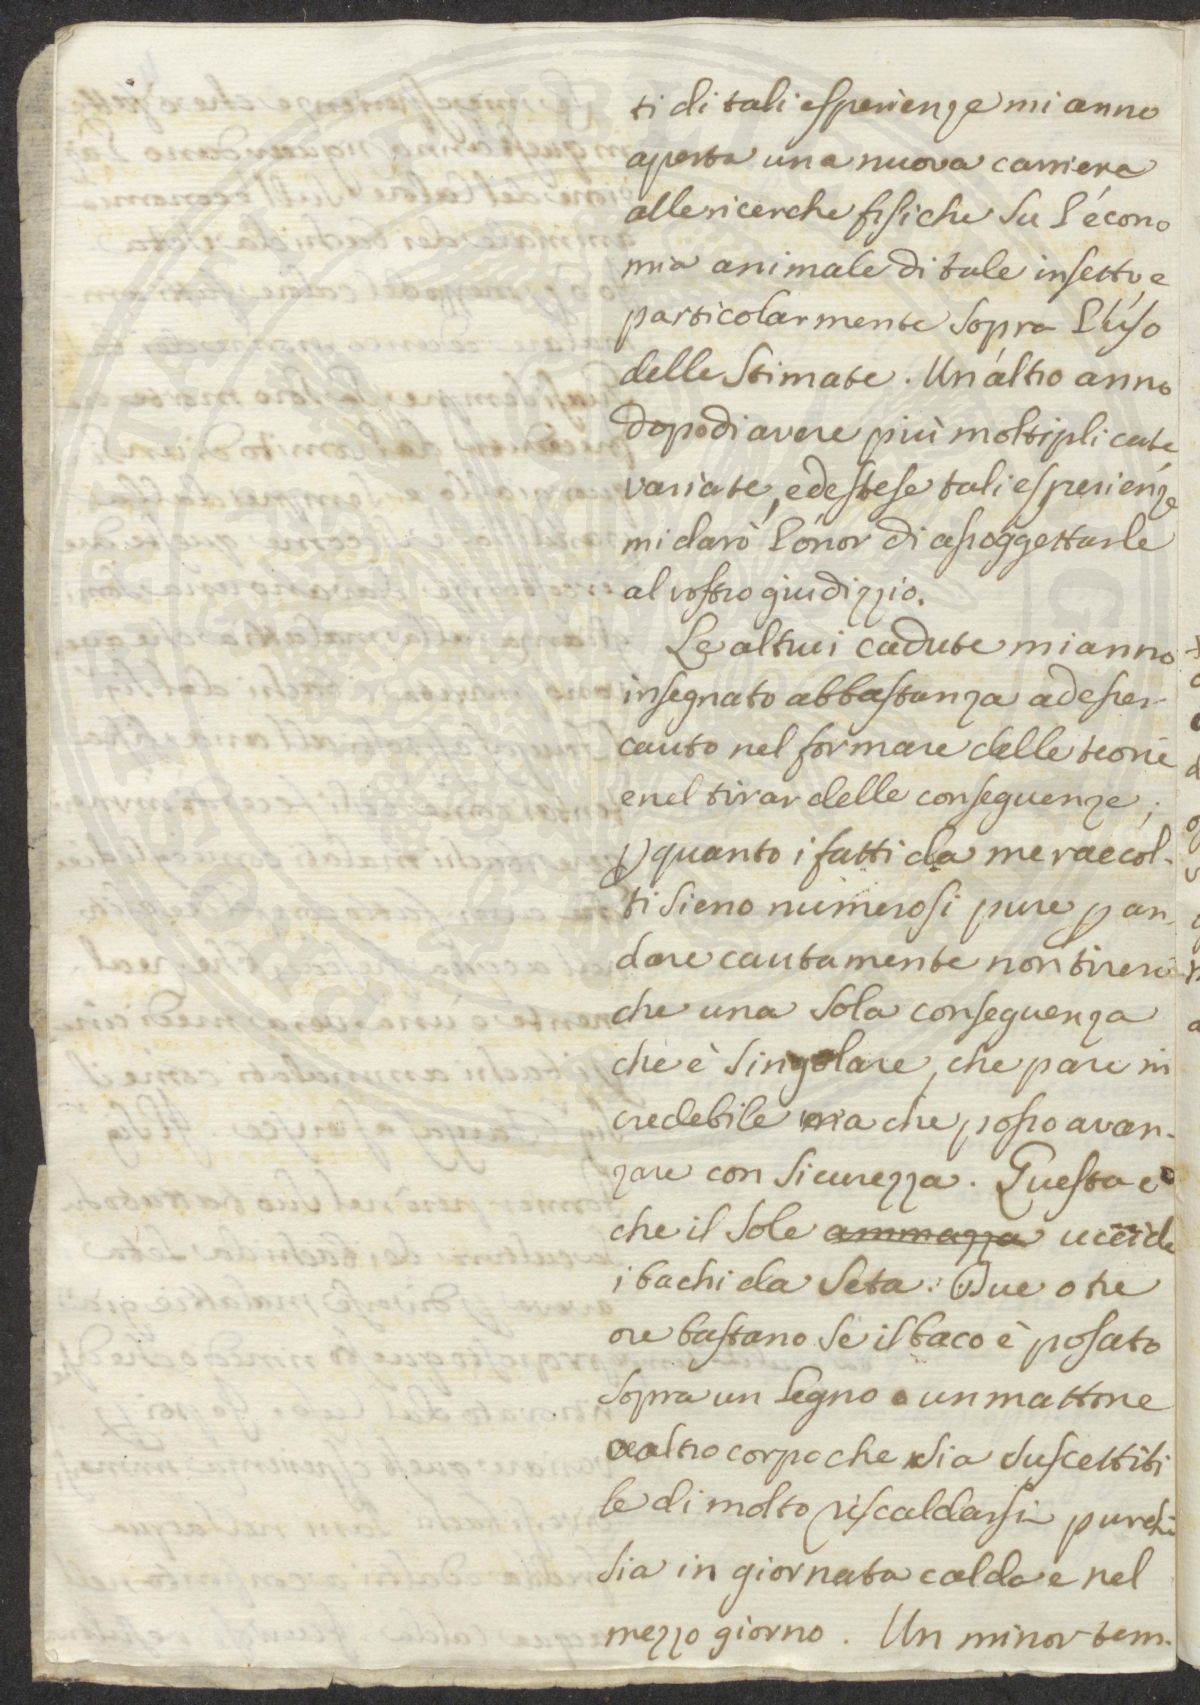 ti di tali esperienze mi anno
aperta una nuova carriera
alle ricerche fisiche su l'écono
mia animale di tale insetto, e
particolarmente sopra l'uso
delle stimate. Un'altro anno
dopo di avere più moltiplicate
variate, ed estese tali esperienze
mi darò l'onor di assoggettarle
al vostro giudizzio.
Le altrui cadute mi anno
insegnato abbastanza ad esser
cauto nel formare delle teorie
e nel tirar delle conseguenze;
p quanto i fatti da me raccol-
ti sieno numerosi pure p an-
dare cautamente non tirerò
che una sola conseguenza
che è singolare, che pare in
credebile ma che posso avan-
zare con sicurezza. Questa è
che il sole ammazza uccide
i bachi da seta. Due o tre
ore bastano se il baco è posato
sopra un legno o un mattone
o altro corpo che sia suscettibi
le di molto riscaldarsi purchè
sia in giornata calda e nel
mezzo giorno. Un minor tem-